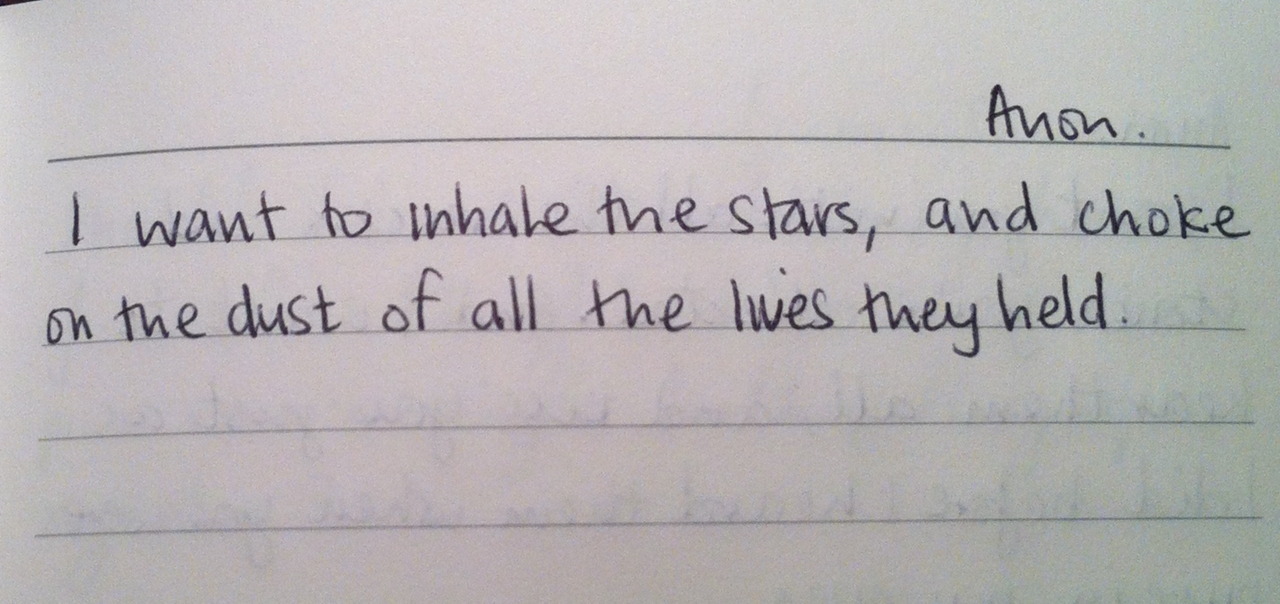 Anon.
I want to inhale the stars, and choke
on the dust of all the lives they held.